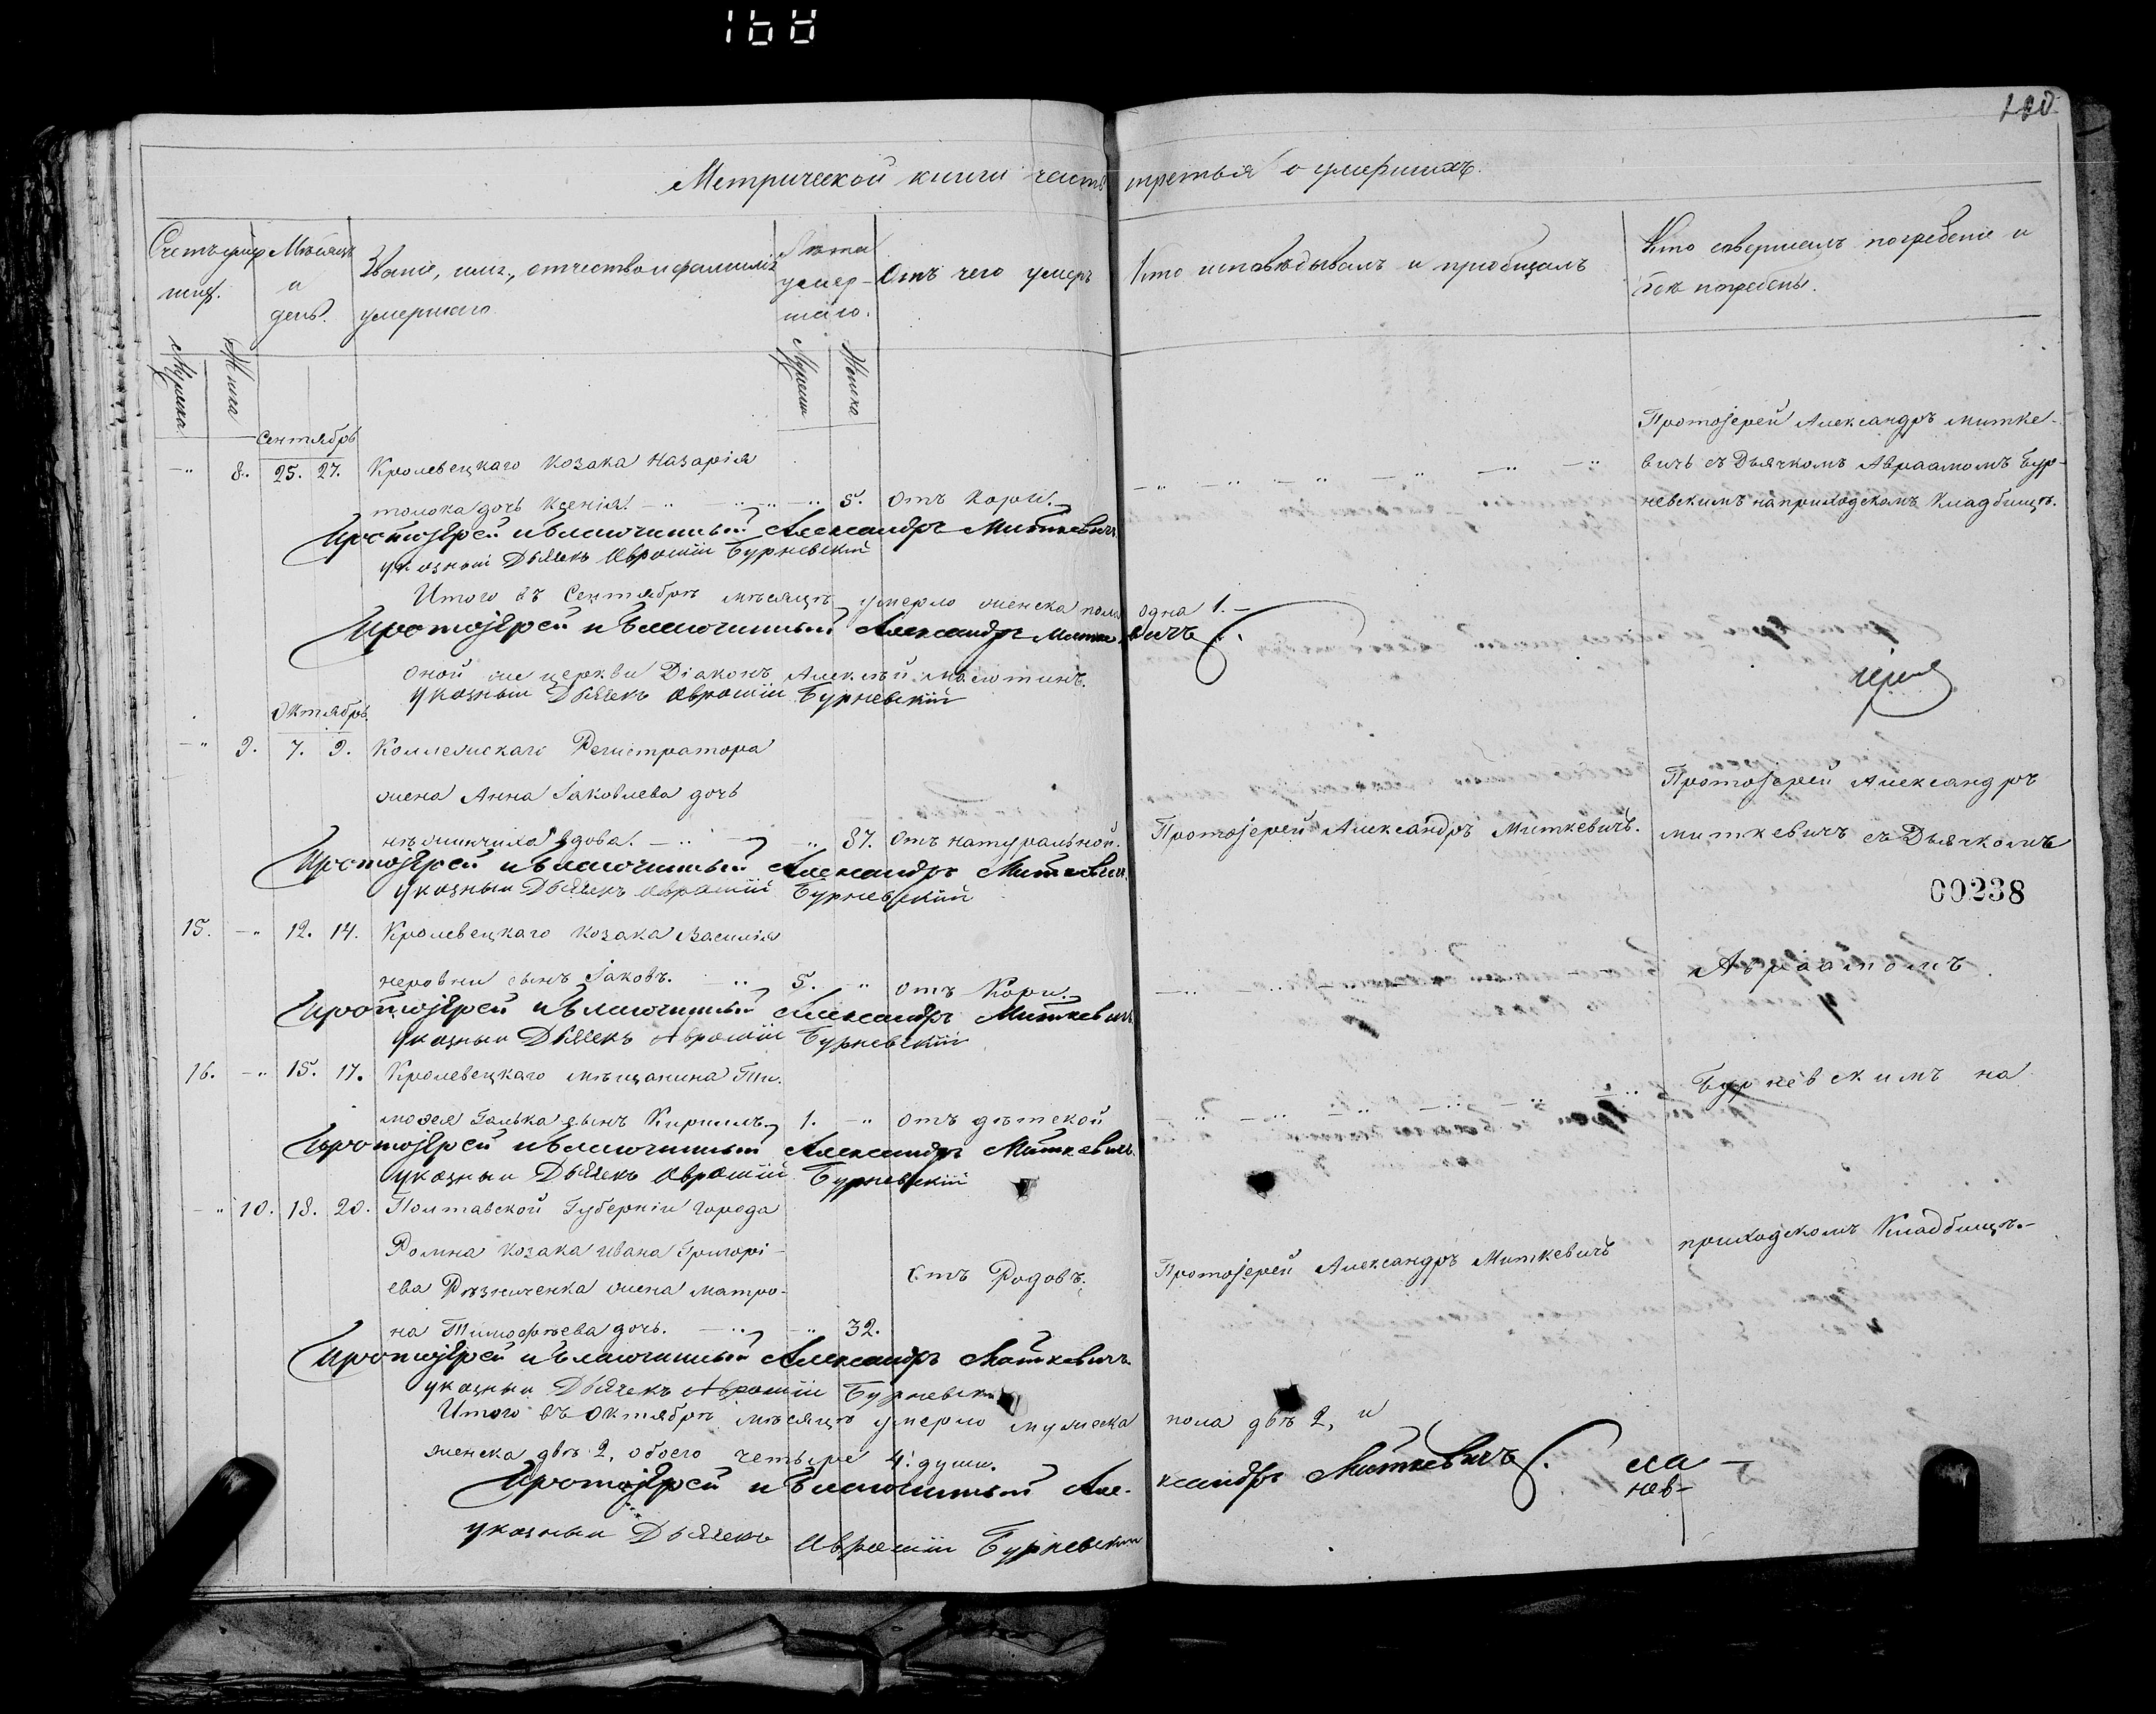 168
Метрической книги часть третья о умершихъ.
Счетъ умер Мѣсяцъ Званіе, имя, отчество и фамилія Лѣта Отъ чего умеръ Кто исповѣдывалъ и пріобщалъ Кто совершалъ погребеніе и
шихъ. и умершаго умер- гдѣ погребены.
день. шаго.
Мужска Женска Мужеска Женска
Сентябрь
Протоіерей Александръ Митке-
8. 25. 27. Кролевецкаго Козака Назарія вичъ съ Дьячкомъ Авраамомъ Бур-
толока дочь Ксенія. 5. Отъ Кори. невскимъ на приходскомъ Кладбищѣ.
Протоіерей и благочинный Александръ Миткевичъ
указный Дьячекъ Аврамій Бурневскій
Итого въ Сентябрѣ мѣсяцѣ умерло женска пола одна 1.
Протоіерей и благочинный Александръ Миткевичъ.
оной же церкви Діаконъ Алексѣй
указный Дьячекъ Аврамій Бурневскій
Октябрь
9. 7. 9. Коллежскаго Регистратора
жена Анна Іаковлева дочь Протоіерей Александръ
вдова. 87. Отъ натуральной. Протоіерей Александръ Миткевичъ. Миткевичъ съ Дьячкомъ
Протоіерей и благочинный Александръ Миткевичъ.
указный Дьячекъ Аврамій Бурневскій
00238
15. 12. 14. Кролевецкаго Козака Василія
неровни сынъ Іаковъ. 5. Отъ Кори. Авраамомъ
Протоіерей и благочинный Александръ Миткевичъ
указный Дьячекъ Аврамій Бурневскій
16. 15. 17. Кролевецкаго мѣщанина Ти- Бурневскимъ на
мофея Галька сынъ Кирилъ. 1. Отъ дѣтской
Протоіерей и благочинный Александръ Миткевичъ.
указный Дьячекъ Аврамій Бурневскій
10. 18. 20. Полтавской Губерніи Города
Ромна Козака Ивана Григорі- приходскомъ Кладбищѣ.
ева Рѣзниченка жена Матро- Отъ Родовъ. Протоіерей Александръ Миткевичъ
на Тимофѣева дочь. 32.
Протоіерей и благочинный Александръ Миткевичъ.
указный Дьячекъ Аврамій Бурневскій
Итого въ Октябрѣ мѣсяцѣ умерло мужеска пола двѣ 2, и
женска двѣ 2, обоего четыре 4. души.
Протоіерей и благочинный Александръ Миткевичъ.
нев-
указный Дьячекъ Аврамій Бурневскій